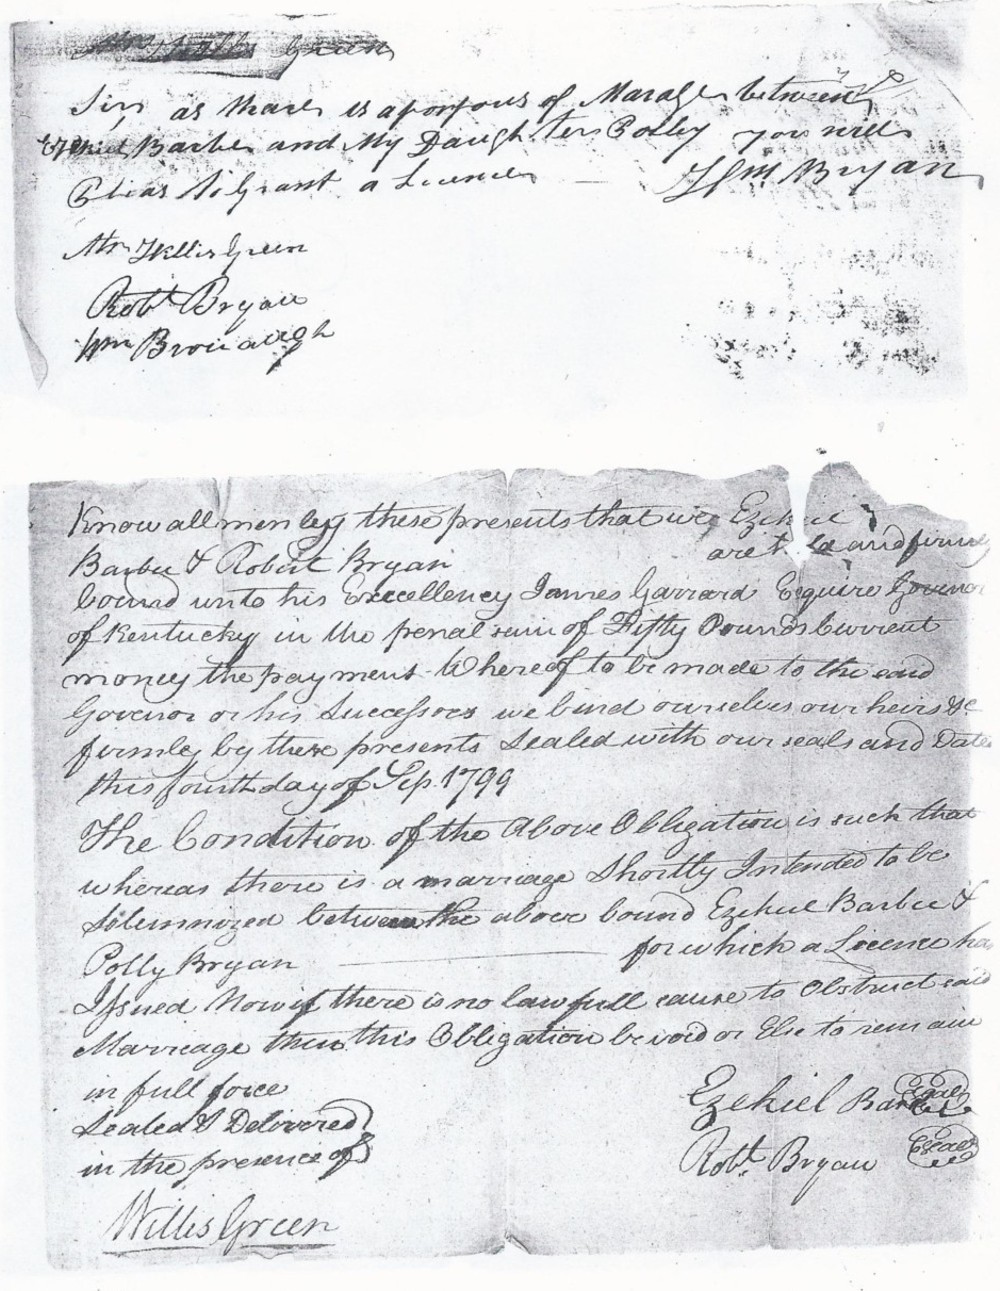 Green
Sir as thare is a porpous of Marage between
Ezekiel Barbe and My Daughter Polly you will
Pleas to Grant a Licence — Wm Bryan
Mr Willis Green
Robt Bryan
Wm Bronaugh
Know all men by these presents that we Ezekiel
Barbee & Robert Bryan are held and firmly
bound unto his Excellency James Garrard Esquire Govenor
of Kentucky in the penal sum of Fifty Pounds Current
money the payment Whereof to be made to the said
Govenor or his Successors we bind ourselves our heirs &c
firmly by these presents Sealed with our seals and Dated
this fourth day of Sep. 1799
The Condition of the Above Obligation is such that
whereas there is a marriage Shortly Intended to be
Solemnized between the above bound Ezekiel Barbee &
Polly Bryan — for which a Licence has
Issued Now if there is no lawfull cause to Obstruct said
Marriage then this Obligation be void or Else to remain
in full force
Sealed & Delivered
in the presence of
Ezekiel Barbee Seal
Robt. Bryan Seal
Willis Green